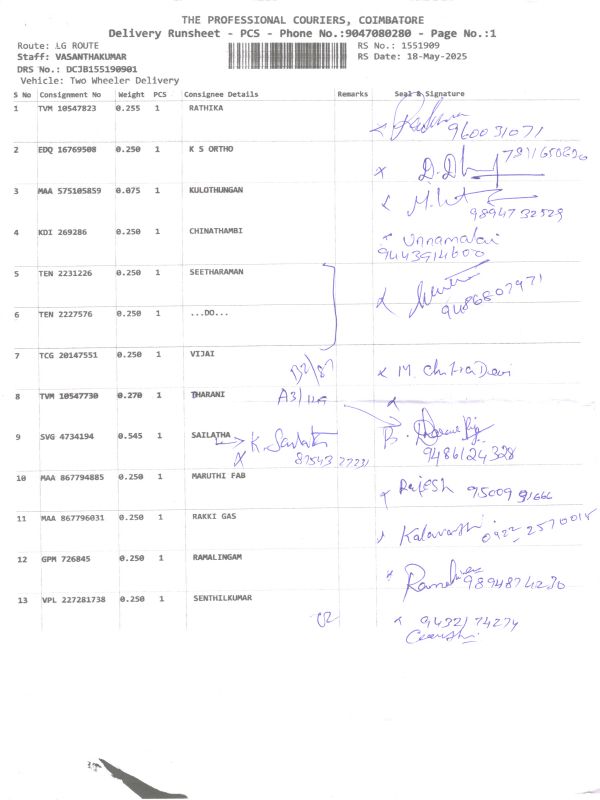 THE PROFESSIONAL COURIERS, COIMBATORE
Delivery Runsheet - PCS - Phone No.:9047080280 - Page No.:1
Route: LG ROUTE RS No.: 1551909
Staff: VASANTHAKUMAR RS Date: 18-May-2025
DRS No.: DCJB155190901
Vehicle: Two Wheeler Delivery
S No Consignment No Weight PCS Consignee Details Remarks Seal & Signature
1 TVM 10547823 0.255 1 RATHIKA
960031071
2 EDQ 16769508 0.250 1 K S ORTHO
3 MAA 575105859 0.075 1 KULOTHUNGAN
9894732529
4 KDI 269286 0.250 1 CHINATHAMBI Unnamalai
9443914600
5 TEN 2231226 0.250 1 SEETHARAMAN
9486807971
6 TEN 2227576 0.250 1 ...DO...
7 TCG 20147551 0.250 1 VIJAI B2/87 M. Chitra Devi
8 TVM 10547730 0.270 1 THARANI
9 SVG 4734194 0.545 1 SAILATHA B.
9486124328
10 MAA 867794885 0.250 1 MARUTHI FAB Rajesh
11 MAA 867796031 0.250 1 RAKKI GAS
12 GPM 726845 0.250 1 RAMALINGAM
9894874230
13 VPL 227281738 0.250 1 SENTHILKUMAR